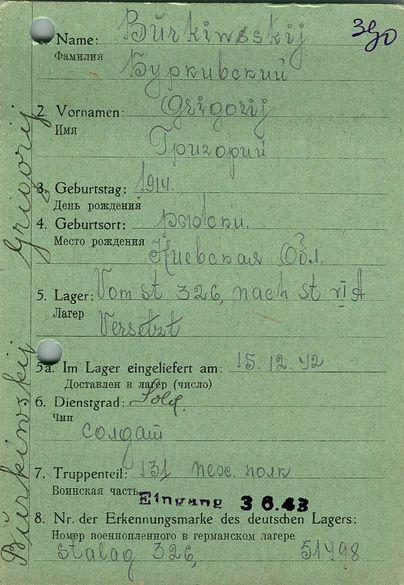 390
1. Name: Bŭrkiwsskij
Фамилия
Буркивский
2. Vornamen: Grigorij
Имя
Григорий
3. Geburtstag: 1914.
День рождения
4. Geburtsort:
Место рождения Киевская Обл.
5. Lager: Vom St 326, nach St VI A
Лагер Versetzt
5a. Im Lager eingeliefert am: 15.12.42
Доставлен в лагер (число)
6. Dienstgrad: Sold.
Чин
солдат
7. Truppenteil: 131 пех. полк
Воинская часть
Eingang 3 6.43
8. Nr. der Erkennungsmarke des deutschen Lagers:
Номер военнопленного в германском лагере
Stalag 326, 51498.
Bŭrkiwskij Grigorij